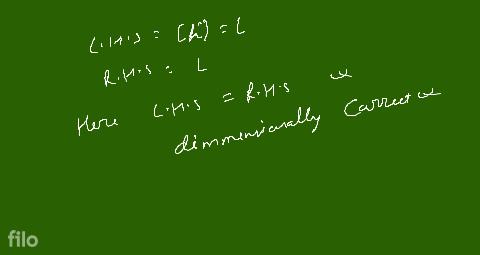 L.H.S = [h] = L
R.H.S = L
Here L.H.S = R.H.S
dimmensionally Carrect
filo